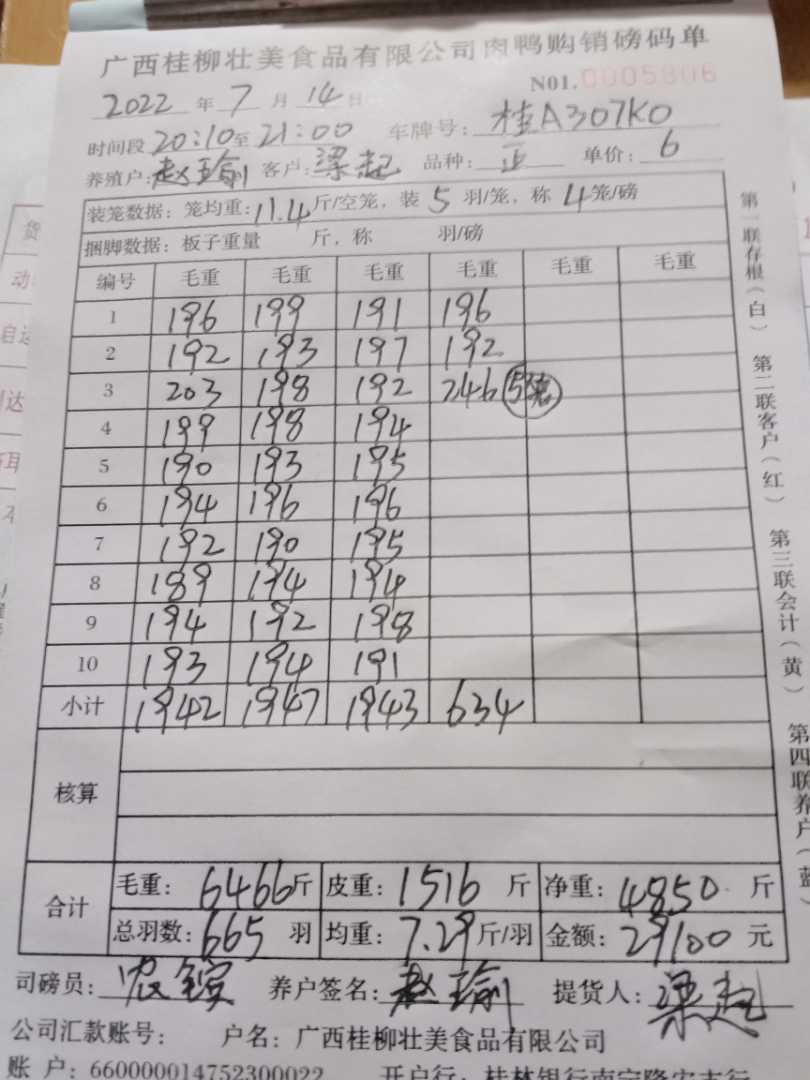 广西桂柳壮美食品有限公司肉鸭购销磅码单
N01.0005806
2022 年 7 月 14 日
时间段 20:10 至 21:00 车牌号: 桂A307K0
养殖户: 赵瑜 客户: 梁起 品种: 正 单价: 6
装笼数据: 笼均重: 11.4 斤/空笼, 装 5 羽/笼, 称 4 笼/磅
捆脚数据: 板子重量 斤, 称 羽/磅
编号 毛重 毛重 毛重 毛重 毛重 毛重
1 196 199 191 196
2 192 193 197 192
3 203 198 192 246 5笼
4 199 198 194
5 190 193 195
6 194 196 196
7 192 190 195
8 189 194 194
9 194 192 198
10 193 194 191
小计 1942 1947 1943 634
核算
合计 毛重: 6466 斤 皮重: 1516 斤 净重: 4850 斤
总羽数: 665 羽 均重: 7.29 斤/羽 金额: 29100 元
司磅员: 农 养户签名: 赵瑜 提货人: 梁起
公司汇款账号: 户名: 广西桂柳壮美食品有限公司
账户: 660000014752300022 开户行: 桂林银行南宁隆安支行
第一联存根(白) 第二联客户(红) 第三联会计(黄) 第四联养户(蓝)